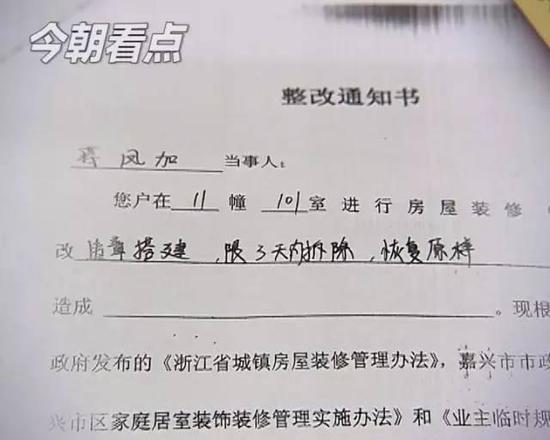 今朝看点
整改通知书
蒋凤加 当事人：
您户在 11 幢 101 室进行房屋装修
改 违章搭建，限3天内拆除，恢复原样
造成 。现根
政府发布的《浙江省城镇房屋装修管理办法》，嘉兴市市政
兴市区家庭居室装饰装修管理实施办法》和《业主临时规